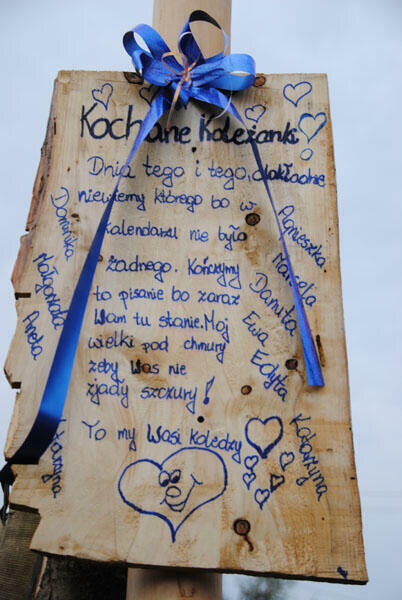 Kochane Koleżanki
Dnia tego i tego, dokładnie
niewiemy którego bo w
kalendarzu nie było
żadnego. Kończymy
to pisanie bo zaraz
Wam tu stanie. Moj
wielki pod chmury
żeby Was nie
zjadły szczury!
To my Wasi koledzy
Dominika
Małgorzata
Aneta
Agnieszka
Danuta
Ewa
Edyta
Katarzyna